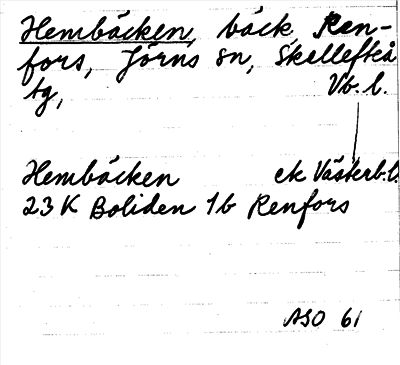 Hembäcken, bäck, Ren-
fors, Jörns sn, Skellefteå
tg, Vb. l.
Hembäcken ek Västerb.l.
23 K Boliden 1b Renfors
ASO 61